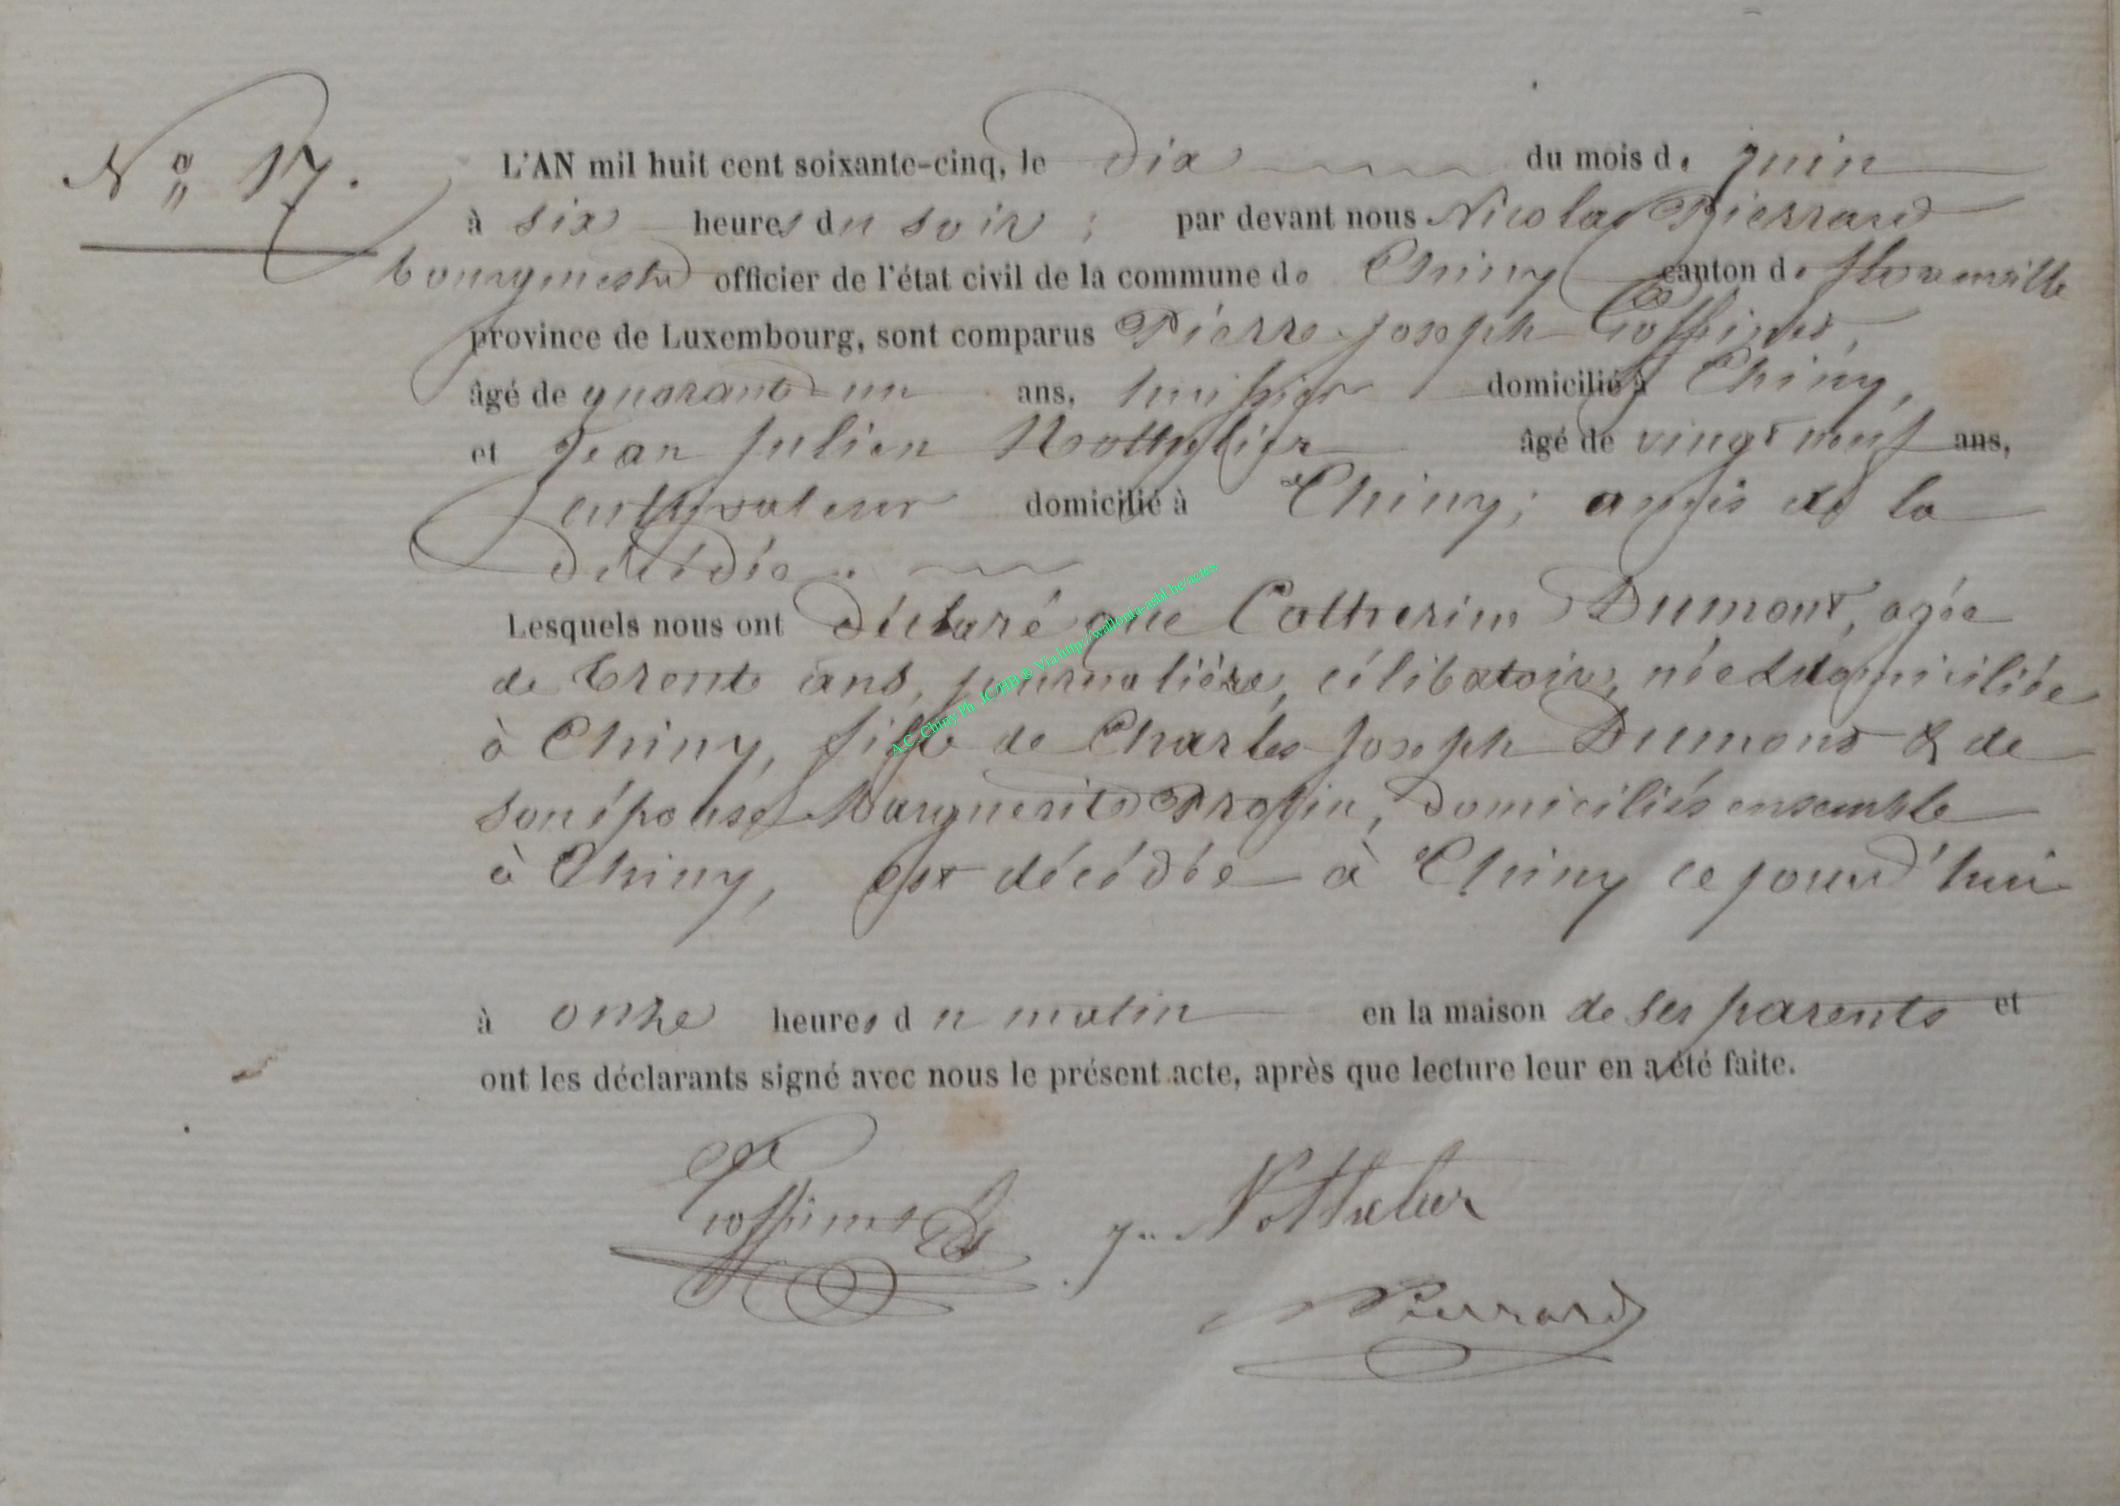 N° 17.
L'AN mil huit cent soixante-cinq, le dix du mois de juin
à six heures du soir ; par devant nous Nicolas Pierrard
bourgmestre officier de l'état civil de la commune de Chiny canton de florenville
province de Luxembourg, sont comparus Pierre Joseph Goffinet,
âgé de quarante-un ans, huissier domicilié à Chiny,
et Jean Julien Nothelier âgé de vingt neuf ans,
cultivateur domicilié à Chiny; amis de la
décédée.
Lesquels nous ont déclaré que Catherine Dumont, agée
de trente ans, journalière, célibataire, née & domiciliée
à Chiny, fille de Charles Joseph Dumont & de
son épouse Marguerite domiciliés ensemble
à Chiny, est décédée à Chiny ce jourd'hui
à onze heures du matin en la maison de ses parents et
ont les déclarants signé avec nous le présent acte, après que lecture leur en a été faite.
Goffinet
Nothelier
Pierrard
A.C. Chiny Ph. JC/HB © Via http://wallonia-asbl.be/actes